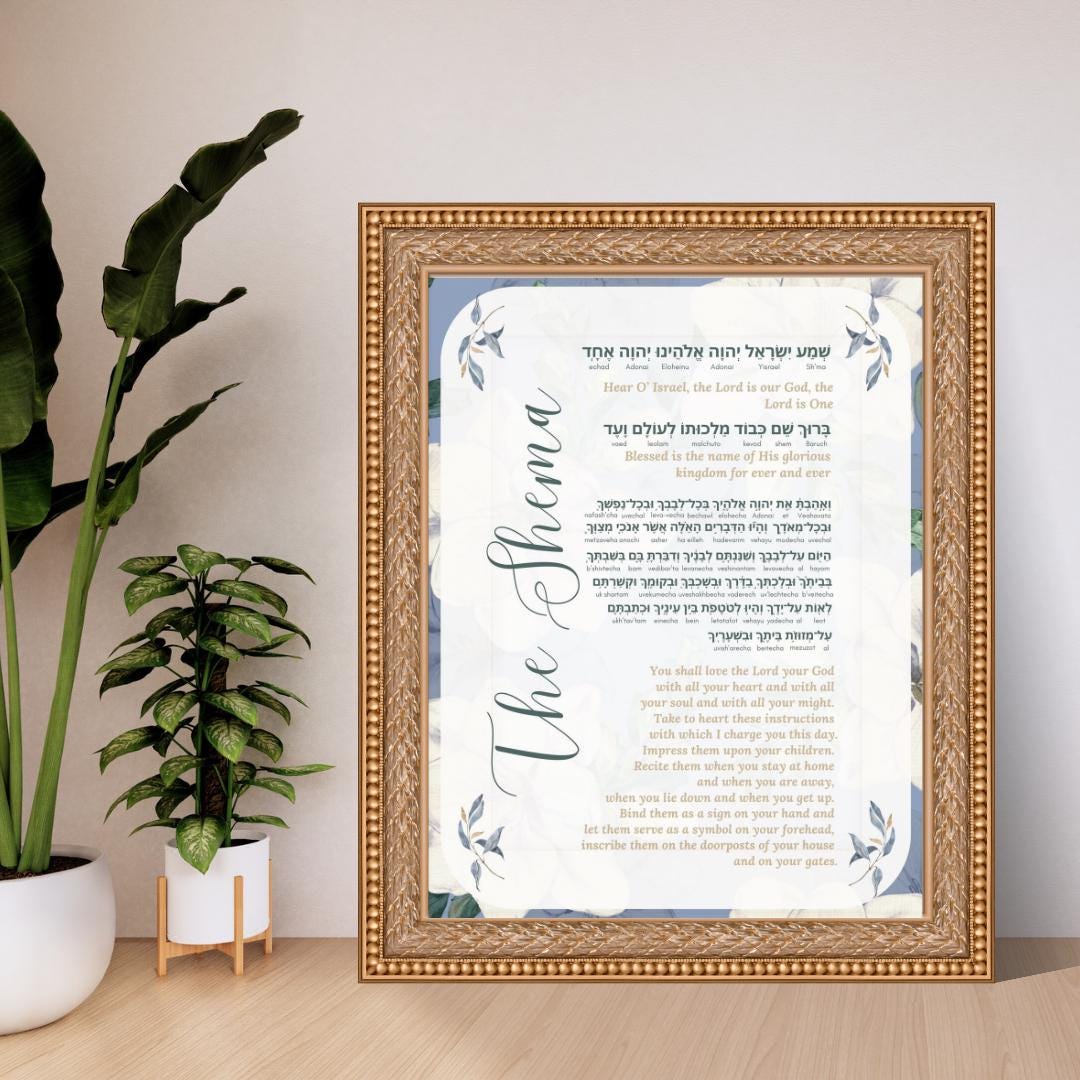 The Shema
שְׁמַע יִשְׂרָאֵל יְהוָה אֱלֹהֵינוּ יְהוָה אֶחָד
echad Adonai Eloheinu Adonai Yisrael Sh'ma
Hear O' Israel, the Lord is our God, the
Lord is One
בָּרוּךְ שֵׁם כְּבוֹד מַלְכוּתוֹ לְעוֹלָם וָעֶד
vaed leolam malchuto kevod shem Baruch
Blessed is the name of His glorious
kingdom for ever and ever
וְאָהַבְתָּ אֵת יְהוָה אֱלֹהֶיךָ בְּכָל־לְבָבְךָ וּבְכָל־נַפְשְׁךָ
nafash'cha uvechal leva-vecha bechawl elohecha Adonai et Veahavata
וּבְכָל־מְאֹדֶךָ וְהָיוּ הַדְּבָרִים הָאֵלֶּה אֲשֶׁר אָנֹכִי מְצַוְּךָ
metzaveha anochi asher ha eilleh hadevarim vehayu modecha uvechal
הַיּוֹם עַל־לְבָבֶךָ וְשִׁנַּנְתָּם לְבָנֶיךָ וְדִבַּרְתָּ בָּם בְּשִׁבְתְּךָ
b'shivtecha bam vedibar'ta levanecha veshinantam levavecha al hayom
בְּבֵיתֶךָ וּבְלֶכְתְּךָ בַדֶּרֶךְ וּבְשָׁכְבְּךָ וּבְקוּמֶךָ וּקְשַׁרְתָּם
uk shartam uvekumecha uveshakhbecha vaderech uv'lechtecha b'veitecha
לְאוֹת עַל־יָדֶךָ וְהָיוּ לְטֹטָפֹת בֵּין עֵינֶיךָ וּכְתַבְתָּם
ukh'tav'tam einecha bein letotafot vehayu yadecha al leot
עַל־מְזוּזֹת בֵּיתֶךָ וּבִשְׁעָרֶיךָ
uvsh'arecha beitecha mezuzot al
You shall love the Lord your God
with all your heart and with all
your soul and with all your might.
Take to heart these instructions
with which I charge you this day.
Impress them upon your children.
Recite them when you stay at home
and when you are away,
when you lie down and when you get up.
Bind them as a sign on your hand and
let them serve as a symbol on your forehead,
inscribe them on the doorposts of your house
and on your gates.